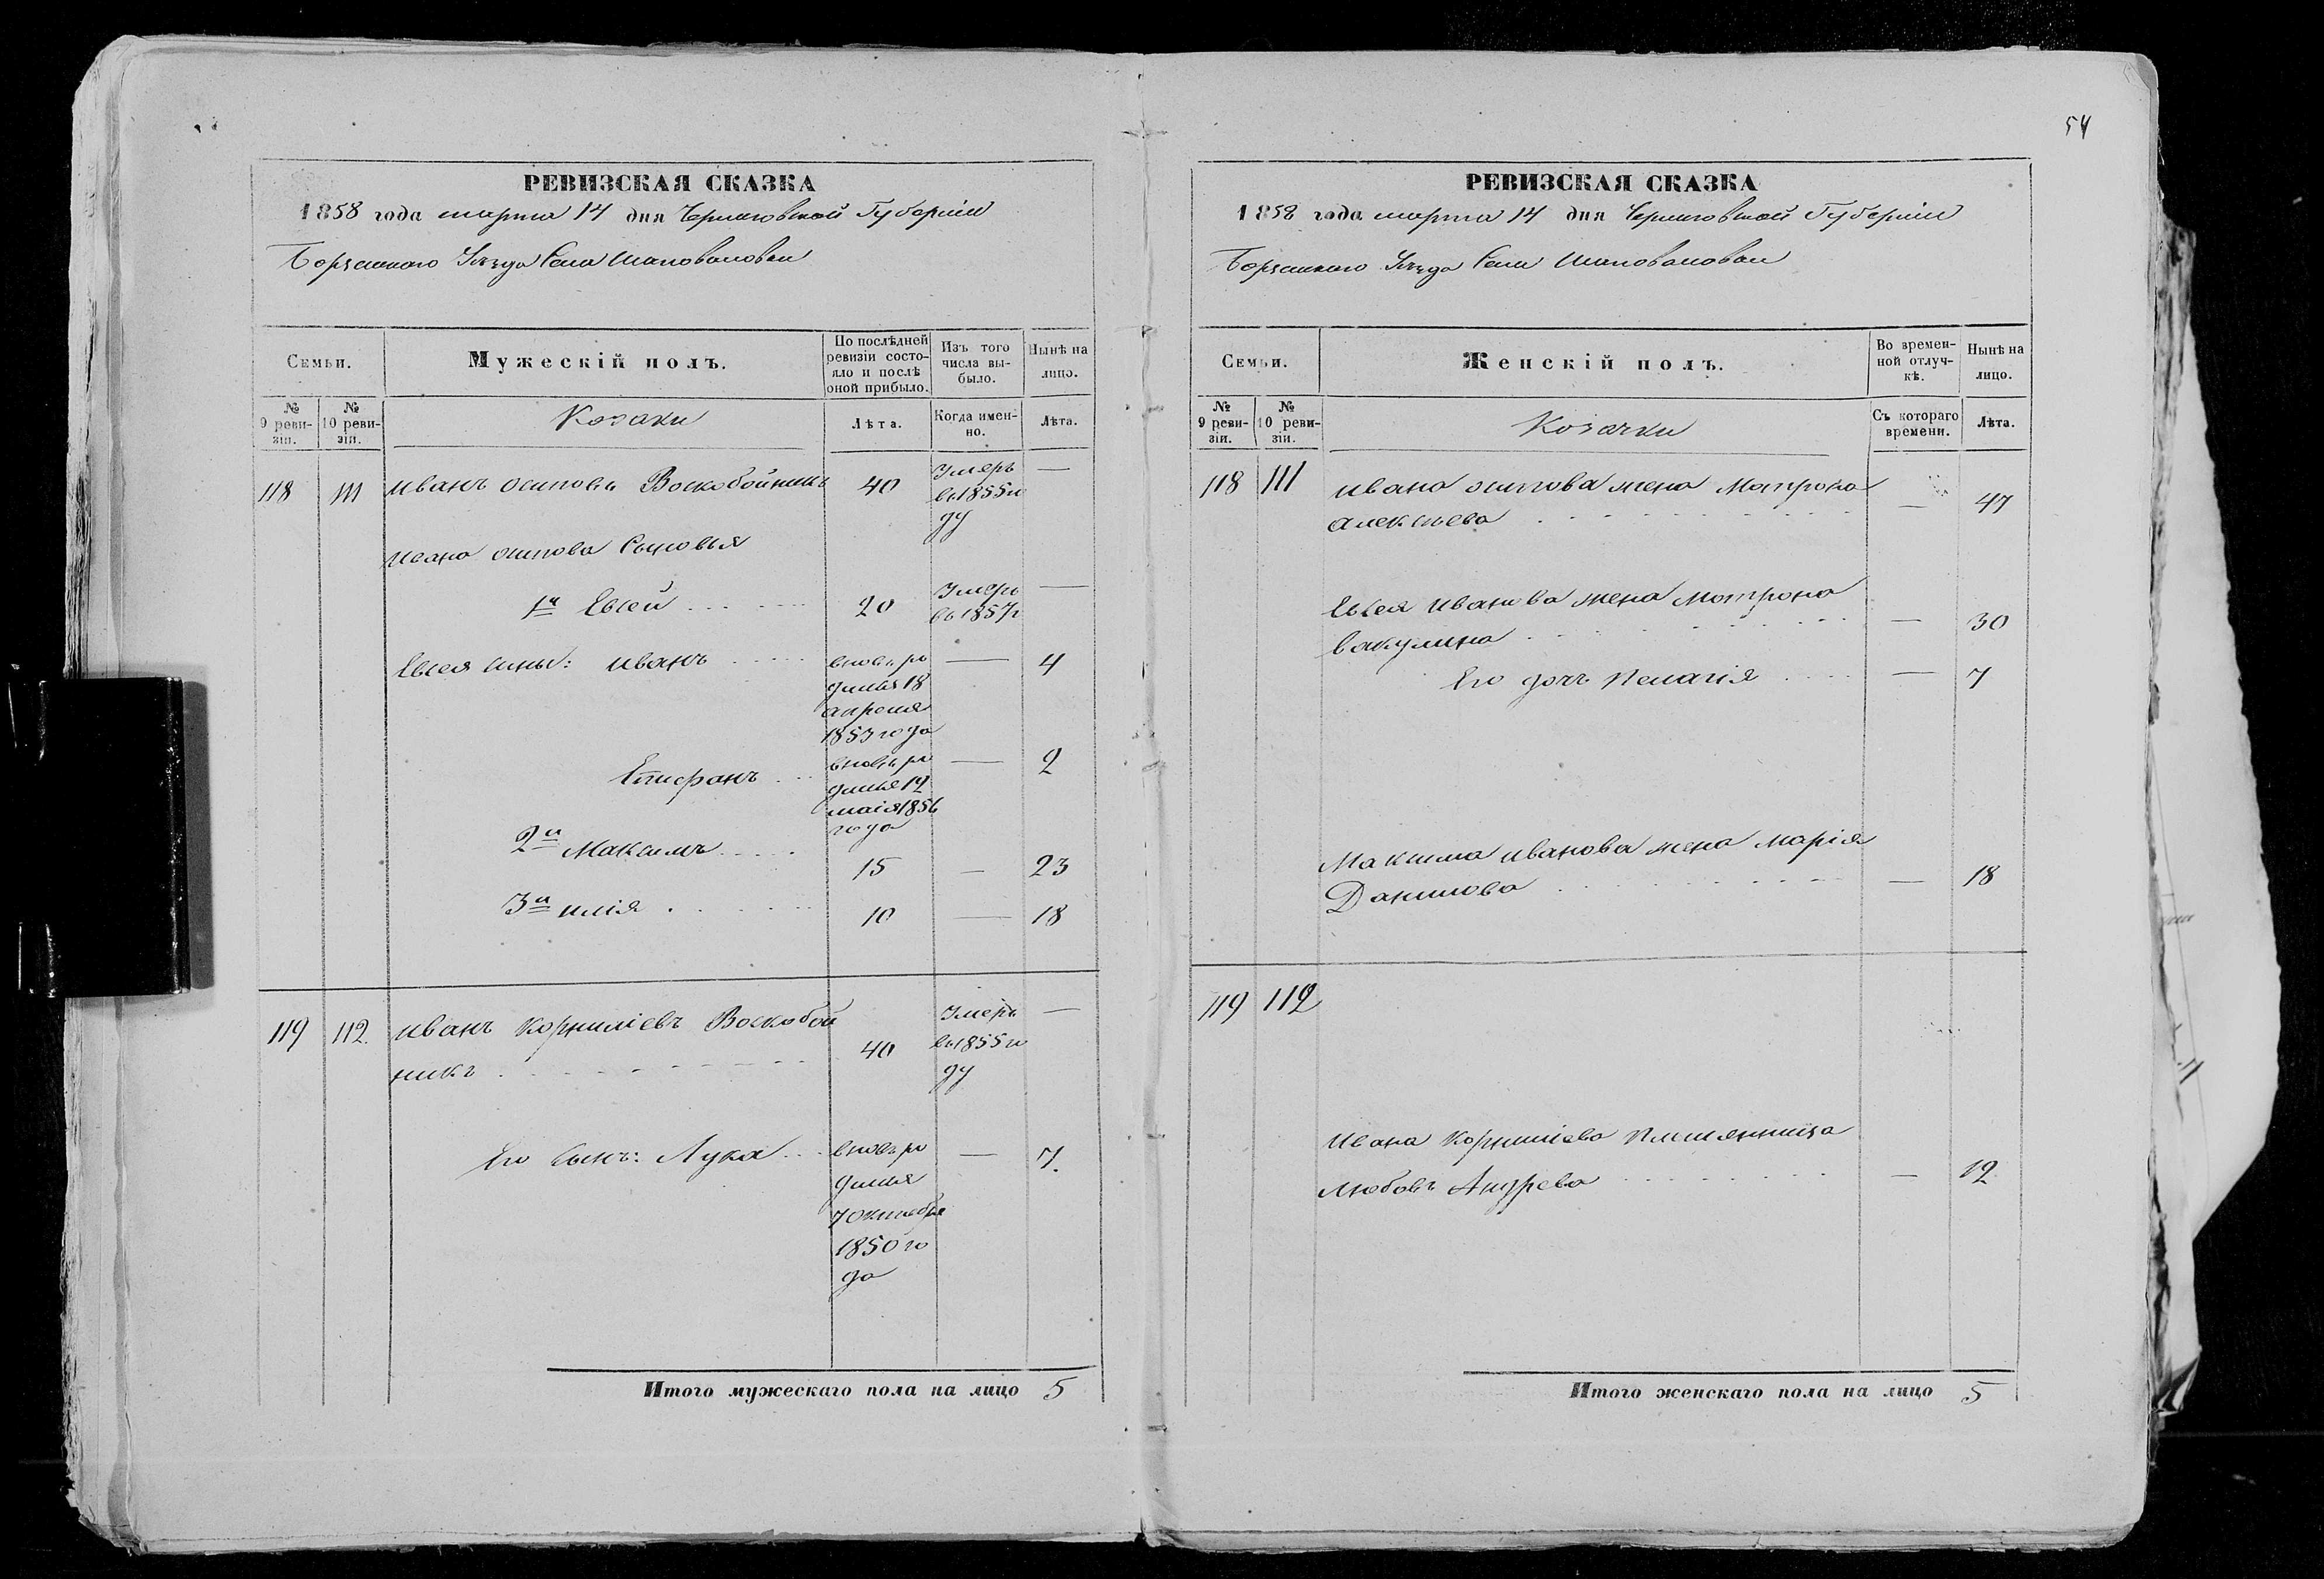 54
РЕВИЗСКАЯ СКАЗКА
1858 года марта 14 дня Черниговской Губерніи
Борзенского Уезда Села Шаповаловки
Семьи.
Мужескій полъ.
По послѣдней
ревизіи состо-
яло и послѣ
оной прибыло.
Изъ того
числа вы-
было.
Нынѣ на
лицо.
№
9 реви-
зіи.
№
10 реви-
зіи.
Козаки
Лѣта.
Когда имен-
но.
Лѣта.
118 111 Иванъ осиповъ Воскобойникъ 40 Умеръ —
въ 1855 го
ду
Ивана осипова Сыновья
1й Евсей 20 Умеръ —
въ 1857 г
Евсея сыны: Иванъ вновь ро — 4
дился 18
апреля
1853 года
Епифанъ вновь ро — 2
дился 12
маія 1856
года
2й Максимъ 15 — 23
3й Илія 10 — 18
119 112. Иванъ Корниліевъ Воскобой 40 Умеръ —
никъ въ 1855 го
ду
Его сынъ: Лука вновь ро — 7.
дился
7 октября
1850 го
да
Итого мужескаго пола на лицо 5
РЕВИЗСКАЯ СКАЗКА
1858 года марта 14 дня Черниговской Губерніи
Борзенского Уезда Села Шаповаловки
Семьи.
Женскій полъ.
Во времен-
ной отлуч-
кѣ.
Нынѣ на
лицо.
№
9 реви-
зіи.
№
10 реви-
зіи.
Козачки
Съ котораго
времени.
Лѣта.
118 111 Ивана осипова жена Матрона
алексѣева — 47
Евсея Иванова жена Мотрона
Вакулина — 30
Его дочь Пелагія — 7
Максима Иванова жена Марія
Данилова — 18
119 112
Ивана Корниліева племянница
Любовь Андрева — 12
Итого женскаго пола на лицо 5